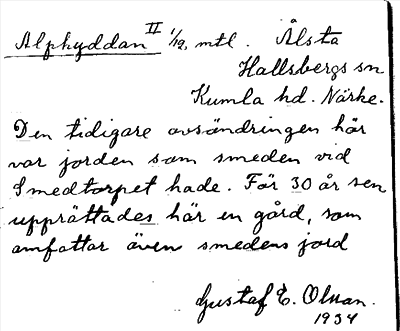 Alphyddan II 1/12, mtl. Ålsta
Hallsbergs sn
Kumla hd. Närke.
Den tidigare avsändringen här
var jorden som smeden vid
Smedtorpet hade. För 30 år sen
upprättades här en gård, som
amfattar även smedens jord
Gustaf E. Olsson.
1934